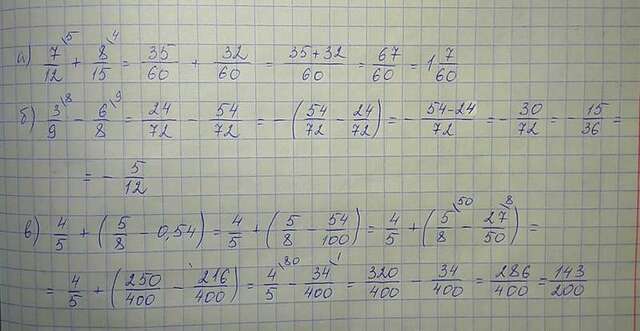 а) 7/12 \5 + 8/15 \4 = 35/60 + 32/60 = (35+32)/60 = 67/60 = 1 7/60
б) 3/9 \8 − 6/8 \9 = 24/72 − 54/72 = −(54/72 − 24/72) = − (54−24)/72 = − 30/72 = − 15/36 =
= − 5/12
в) 4/5 + (5/8 − 0,54) = 4/5 + (5/8 − 54/100) = 4/5 + (5/8 \50 − 27/50 \8) =
= 4/5 + (250/400 − 216/400) = 4/5 \80 − 34/400 \1 = 320/400 − 34/400 = 286/400 = 143/200